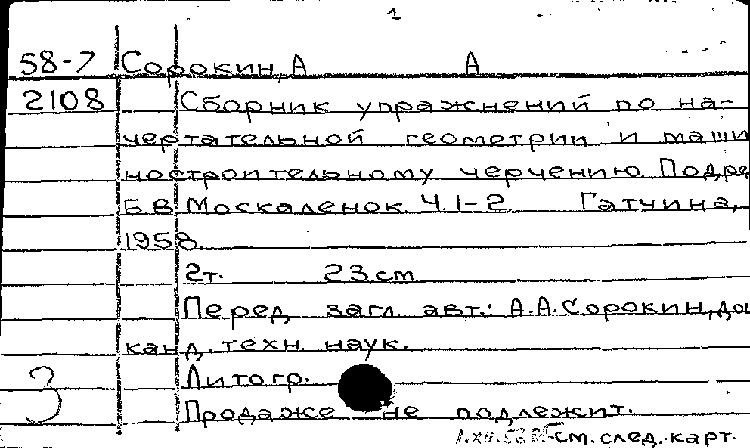 1
58-7 Сорокин, А А
2108 Сборник упражнений по на-
чертательной геометрии и маши
ностроительному черчению Под ре
Б.В. Москаленок Ч. 1-2 Гатчина,
1958.
2т. 23 см
Перед загл. авт.: А.А. Сорокин, доц
канд. техн. наук.
Литогр.
3 Продаже не подлежит.
см. след. карт.